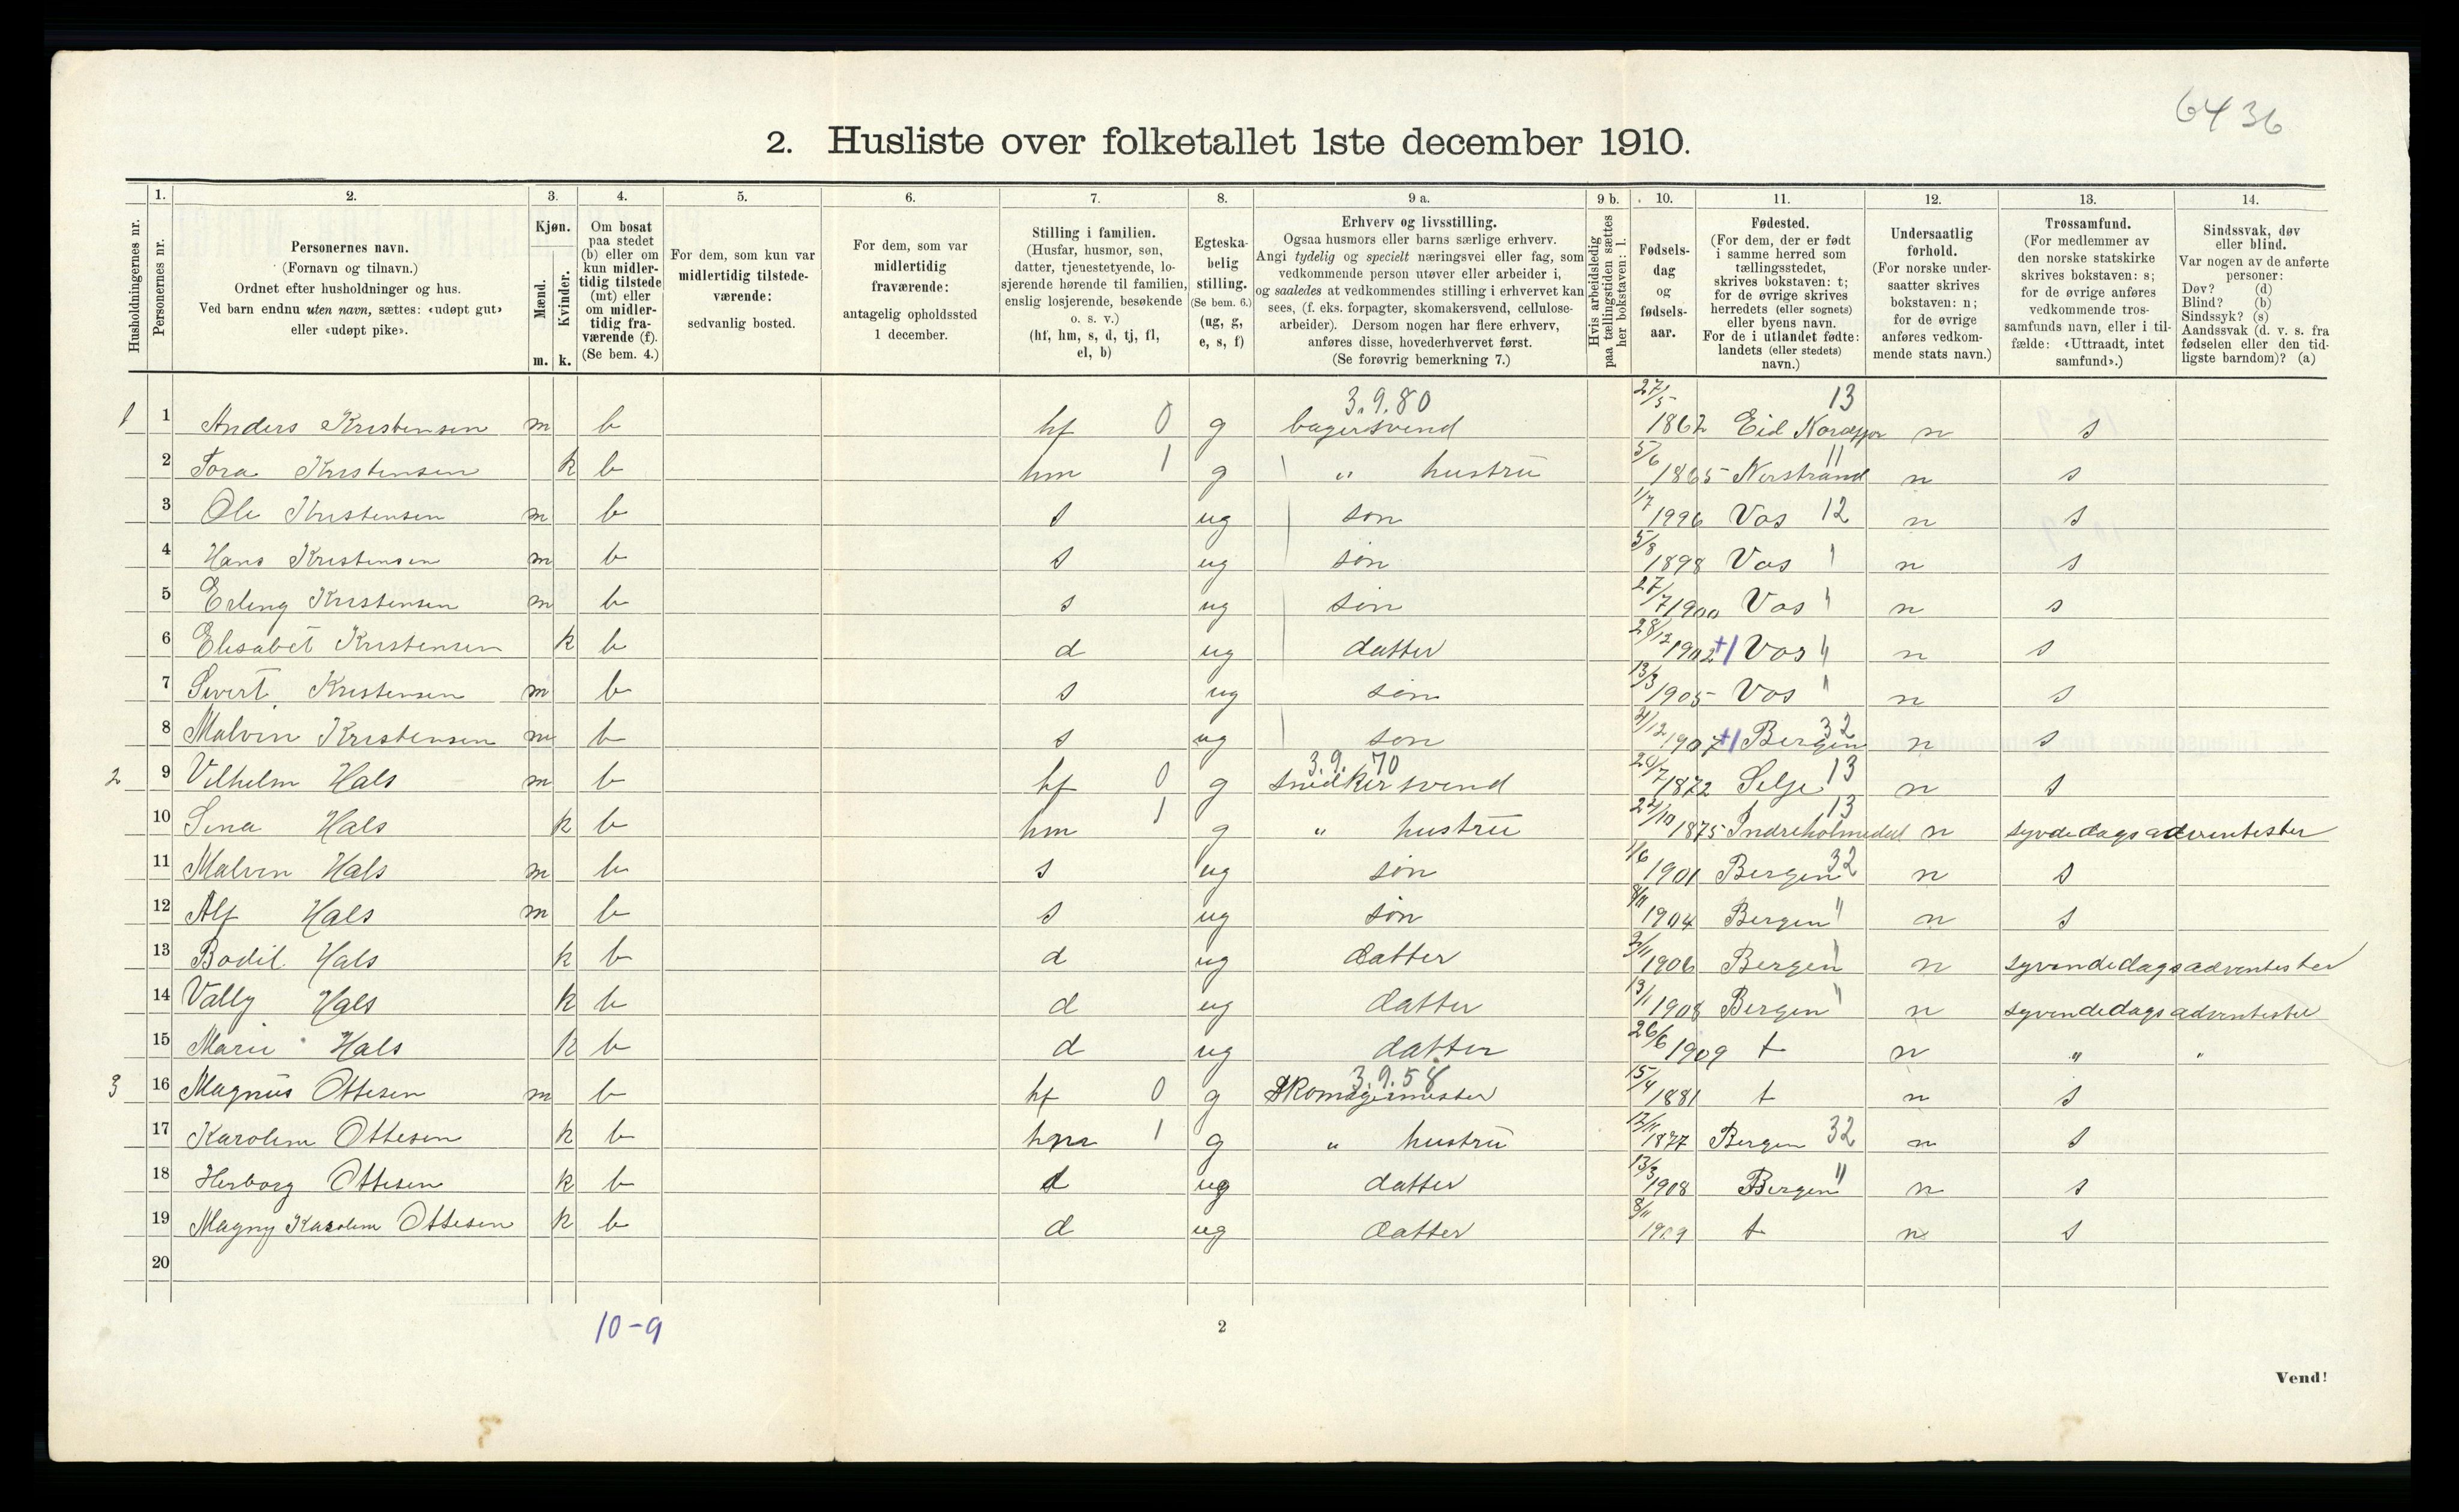 6436
2. Husliste over folketallet 1ste december 1910.
Husholdningernes nr.
1. Personernes nr.
2. Personernes navn. (Fornavn og tilnavn.) Ordnet efter husholdninger og hus. Ved barn endnu uten navn, sættes: «udøpt gut» eller «udøpt pike».
3. Kjøn. Mænd. m. Kvinder. k.
4. Om bosat paa stedet (b) eller om kun midlertidig tilstede (mt) eller om midlertidig fraværende (f). (Se bem. 4.)
5. For dem, som kun var midlertidig tilstedeværende: sedvanlig bosted.
6. For dem, som var midlertidig fraværende: antagelig opholdssted 1 december.
7. Stilling i familien. (Husfar, husmor, søn, datter, tjenestetyende, losjerende hørende til familien, enslig losjerende, besøkende o. s. v.) (hf, hm, s, d, tj, fl, el, b)
8. Egteskabelig stilling. (Se bem. 6.) (ug, g, e, s, f)
9 a. Erhverv og livsstilling. Ogsaa husmors eller barns særlige erhverv. Angi tydelig og specielt næringsvei eller fag, som vedkommende person utøver eller arbeider i, og saaledes at vedkommendes stilling i erhvervet kan sees, (f. eks. forpagter, skomakersvend, cellulosearbeider). Dersom nogen har flere erhverv, anføres disse, hovederhvervet først. (Se forøvrig bemerkning 7.)
9 b. Hvis arbeidsledig paa tællingstiden sættes her bokstaven: l.
10. Fødselsdag og fødselsaar.
11. Fødested. (For dem, der er født i samme herred som tællingsstedet, skrives bokstaven: t; for de øvrige skrives herredets (eller sognets) eller byens navn. For de i utlandet fødte: landets (eller stedets) navn.)
12. Undersaatlig forhold. (For norske undersaatter skrives bokstaven: n; for de øvrige anføres vedkommende stats navn.)
13. Trossamfund. (For medlemmer av den norske statskirke skrives bokstaven: s; for de øvrige anføres vedkommende trossamfunds navn, eller i tilfælde: «Uttraadt, intet samfund».)
14. Sindssvak, døv eller blind. Var nogen av de anførte personer: Døv? (d) Blind? (b) Sindssyk? (s) Aandssvak (d. v. s. fra fødselen eller den tidligste barndom)? (a)
1 1 Anders Kristensen m b hf 0 g 3.9.80 bagersvend 27/5 1862 Eid 13 n s
2 Tora Kristensen k b hm 1 g " hustru 5/6 1865 Nerstrand 11 n s
3 Ole Kristensen m b s ug søn 1/7 1996 Vos 12 n s
4 Hans Kristensen m b s ug søn 5/8 1898 Vos " n s
5 Erling Kristensen m b s ug søn 27/7 1900 Vos " n s
6 Elisabet Kristensen k b d ug datter 28/12 1902 +1 Vos " n s
7 Sivert Kristensen m b s ug søn 13/3 1905 Vos " n s
8 Malvin Kristensen m b s ug søn /12 1907 +1 Bergen 32 n s
2 9 Vilhelm Hals m b hf 0 g 3.9.70 snedkersvend /7 1872 Selje 13 n s
10 Sina Hals k b hm 1 g " hustru /10 1875 Indreholmedal 13 n syvdedagsadventister
11 Malvin Hals m b s ug søn 1/6 1901 Bergen 32 n s
12 Alf Hals m b s ug søn 8/11 1904 Bergen " n s
13 Bodil Hals k b d ug datter 2/11 1906 Bergen " n syvendedagsadventister
14 Vally Hals k b d ug datter 13/11 1908 Bergen " n syvendedagsadventister
15 Marie Hals k b d ug datter 26/6 1909 t n " "
3 16 Magnus Ottesen m b hf 0 g 3.9.58 Skomagermester 15/4 1881 t n s
17 Karoline Ottesen k b hm 1 g " hustru 12/11 1877 Bergen 32 n s
18 Herborg Ottesen k b d ug datter 13/3 1908 Bergen " n s
19 Magny Karoline Ottesen k b d ug datter 8/11 1909 t n s
20
10-9
2
Vend!